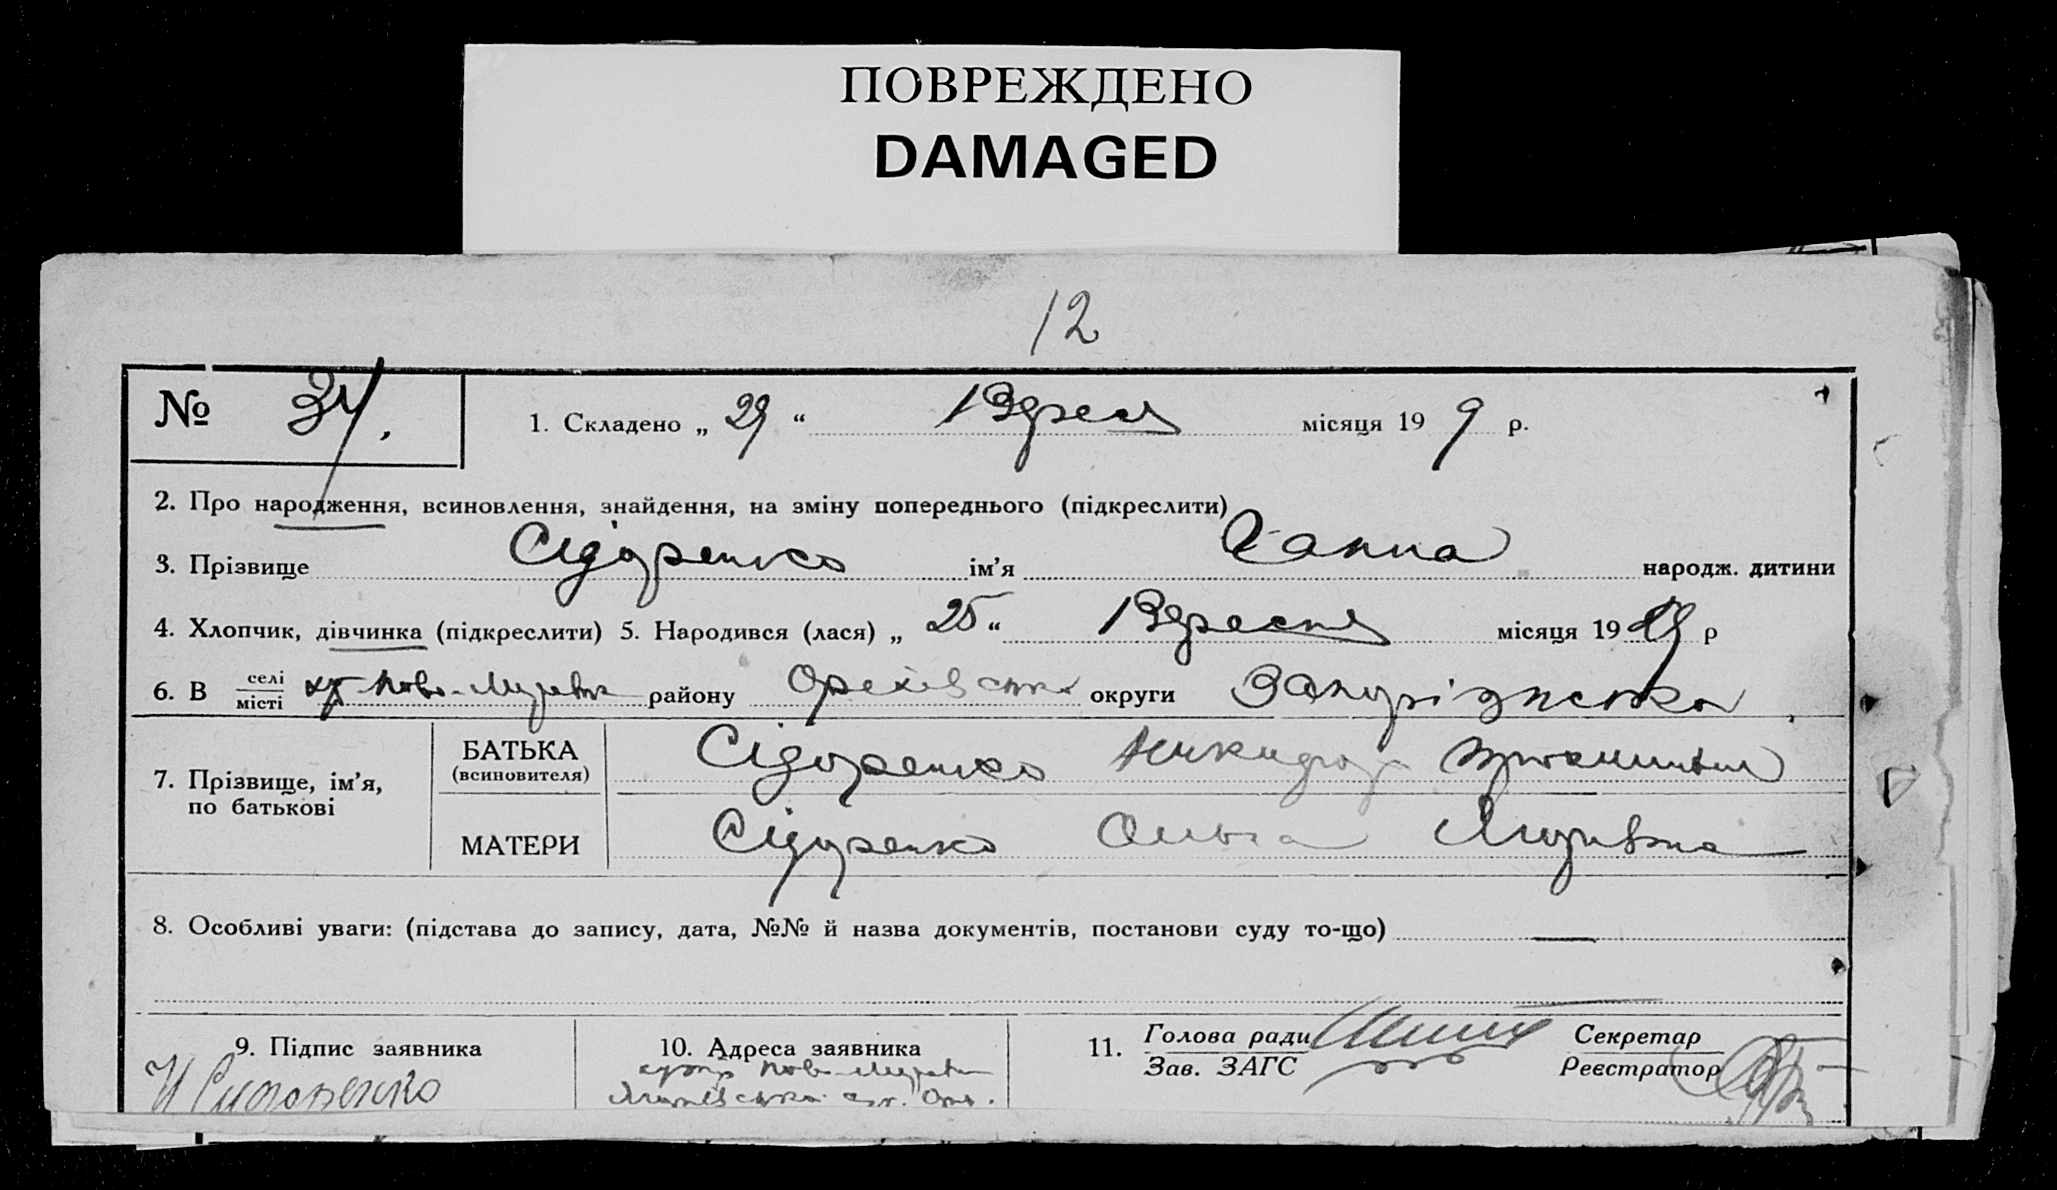 ПОВРЕЖДЕНО
DAMAGED
12
№ 34. 1. Складено „ 29 “ Вересн місяця 19 9 р.
2. Про народження, всиновлення, знайдення, на зміну попереднього (підкреслити)
3. Прізвище Сідоренко ім’я Ганна народж. дитини
4. Хлопчик, дівчинка (підкреслити) 5. Народився (лася) „ 25 “ Вересня місяця 19 29 р
6. В селі місті х. Ново- району Орехівська округи Запоріжська
7. Прізвище, ім’я, по батькові
БАТЬКА (всиновителя) Сідоренко Никифор
МАТЕРИ Сідоренко Ольга
8. Особливі уваги: (підстава до запису, дата, №№ й назва документів, постанови суду то-що) —
9. Підпис заявника
Н Сидоренко
10. Адреса заявника
хутір Ново-
11. Голова ради
Зав. ЗАГС
Секретар
Реєстратор